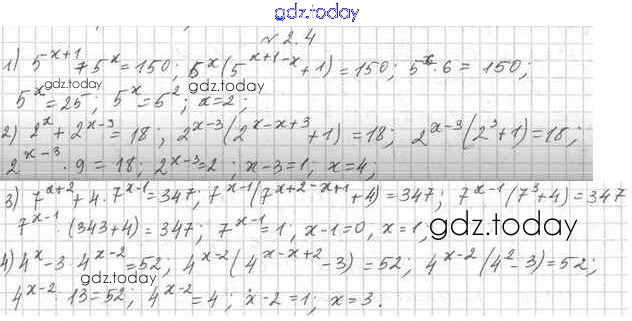 gdz.today
№ 2.4
1) 5^{x+1} + 5^x = 150; 5^x(5^{x+1-x}+1) = 150; 5^x·6 = 150;
gdz.today gdz.today
5^x = 25; 5^x = 5^2; x = 2;
2) 2^x + 2^{x-3} = 18; 2^{x-3}(2^{x-x+3}+1) = 18; 2^{x-3}(2^3+1) = 18;
2^{x-3}·9 = 18; 2^{x-3} = 2; x-3 = 1; x = 4;
3) 7^{x+2} + 4·7^{x-1} = 347; 7^{x-1}(7^{x+2-x+1}+4) = 347; 7^{x-1}(7^3+4) = 347
7^{x-1}·(343+4) = 347; 7^{x-1} = 1; x-1 = 0, x = 1,
gdz.today
4) 4^x - 3·4^{x-2} = 52; 4^{x-2}(4^{x-x+2}-3) = 52; 4^{x-2}(4^2-3) = 52;
gdz.today gdz.today
4^{x-2}·13 = 52; 4^{x-2} = 4; x-2 = 1; x = 3.